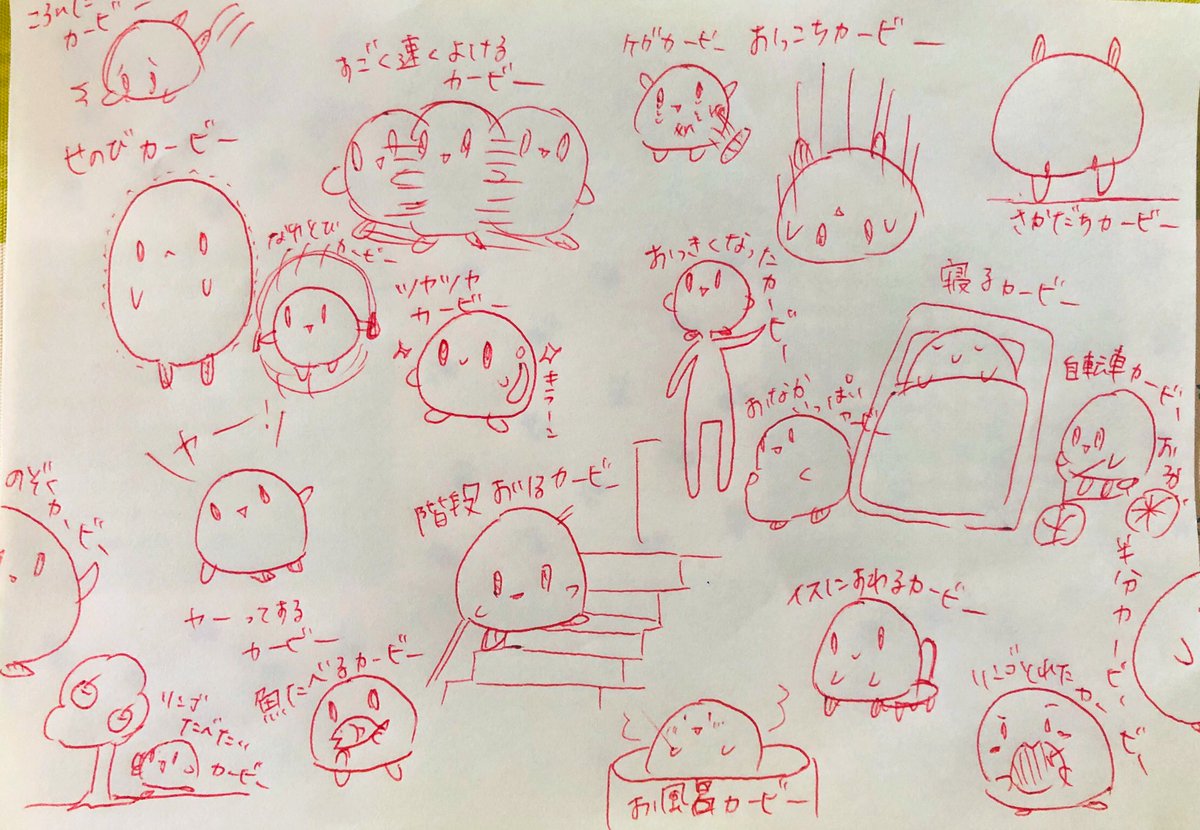 ころんだ
カービー
すごく速くよける
カービー
ケガカービー
おっこちカービー
さかだちカービー
せのびカービー
なわとび
カービー
ツヤツヤ
カービー
キラーン
おっきくなったカービー
寝るカービー
おなか
いっぱい
カービー
自転車カービー
ヤー!
ヤーってする
カービー
のぞくカービー
階段おりるカービー
半分カービー
イスにすわるカービー
リンゴとれたカービー
リンゴ
たべたい
カービー
魚たべるカービー
お風呂カービー